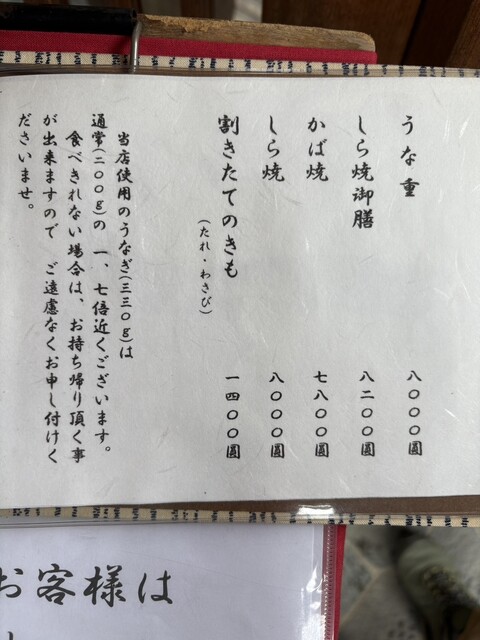 うな重 八〇〇〇圓
しら焼御膳 八二〇〇圓
かば焼 七八〇〇圓
しら焼 八〇〇〇圓
割きたてのきも 一四〇〇圓
(たれ・わさび)
当店使用のうなぎ(三三〇g)は
通常(二〇〇g)の一、七倍近くございます。
食べきれない場合は、お持ち帰り頂く事
が出来ますので ご遠慮なくお申し付けく
ださいませ。
お客様は